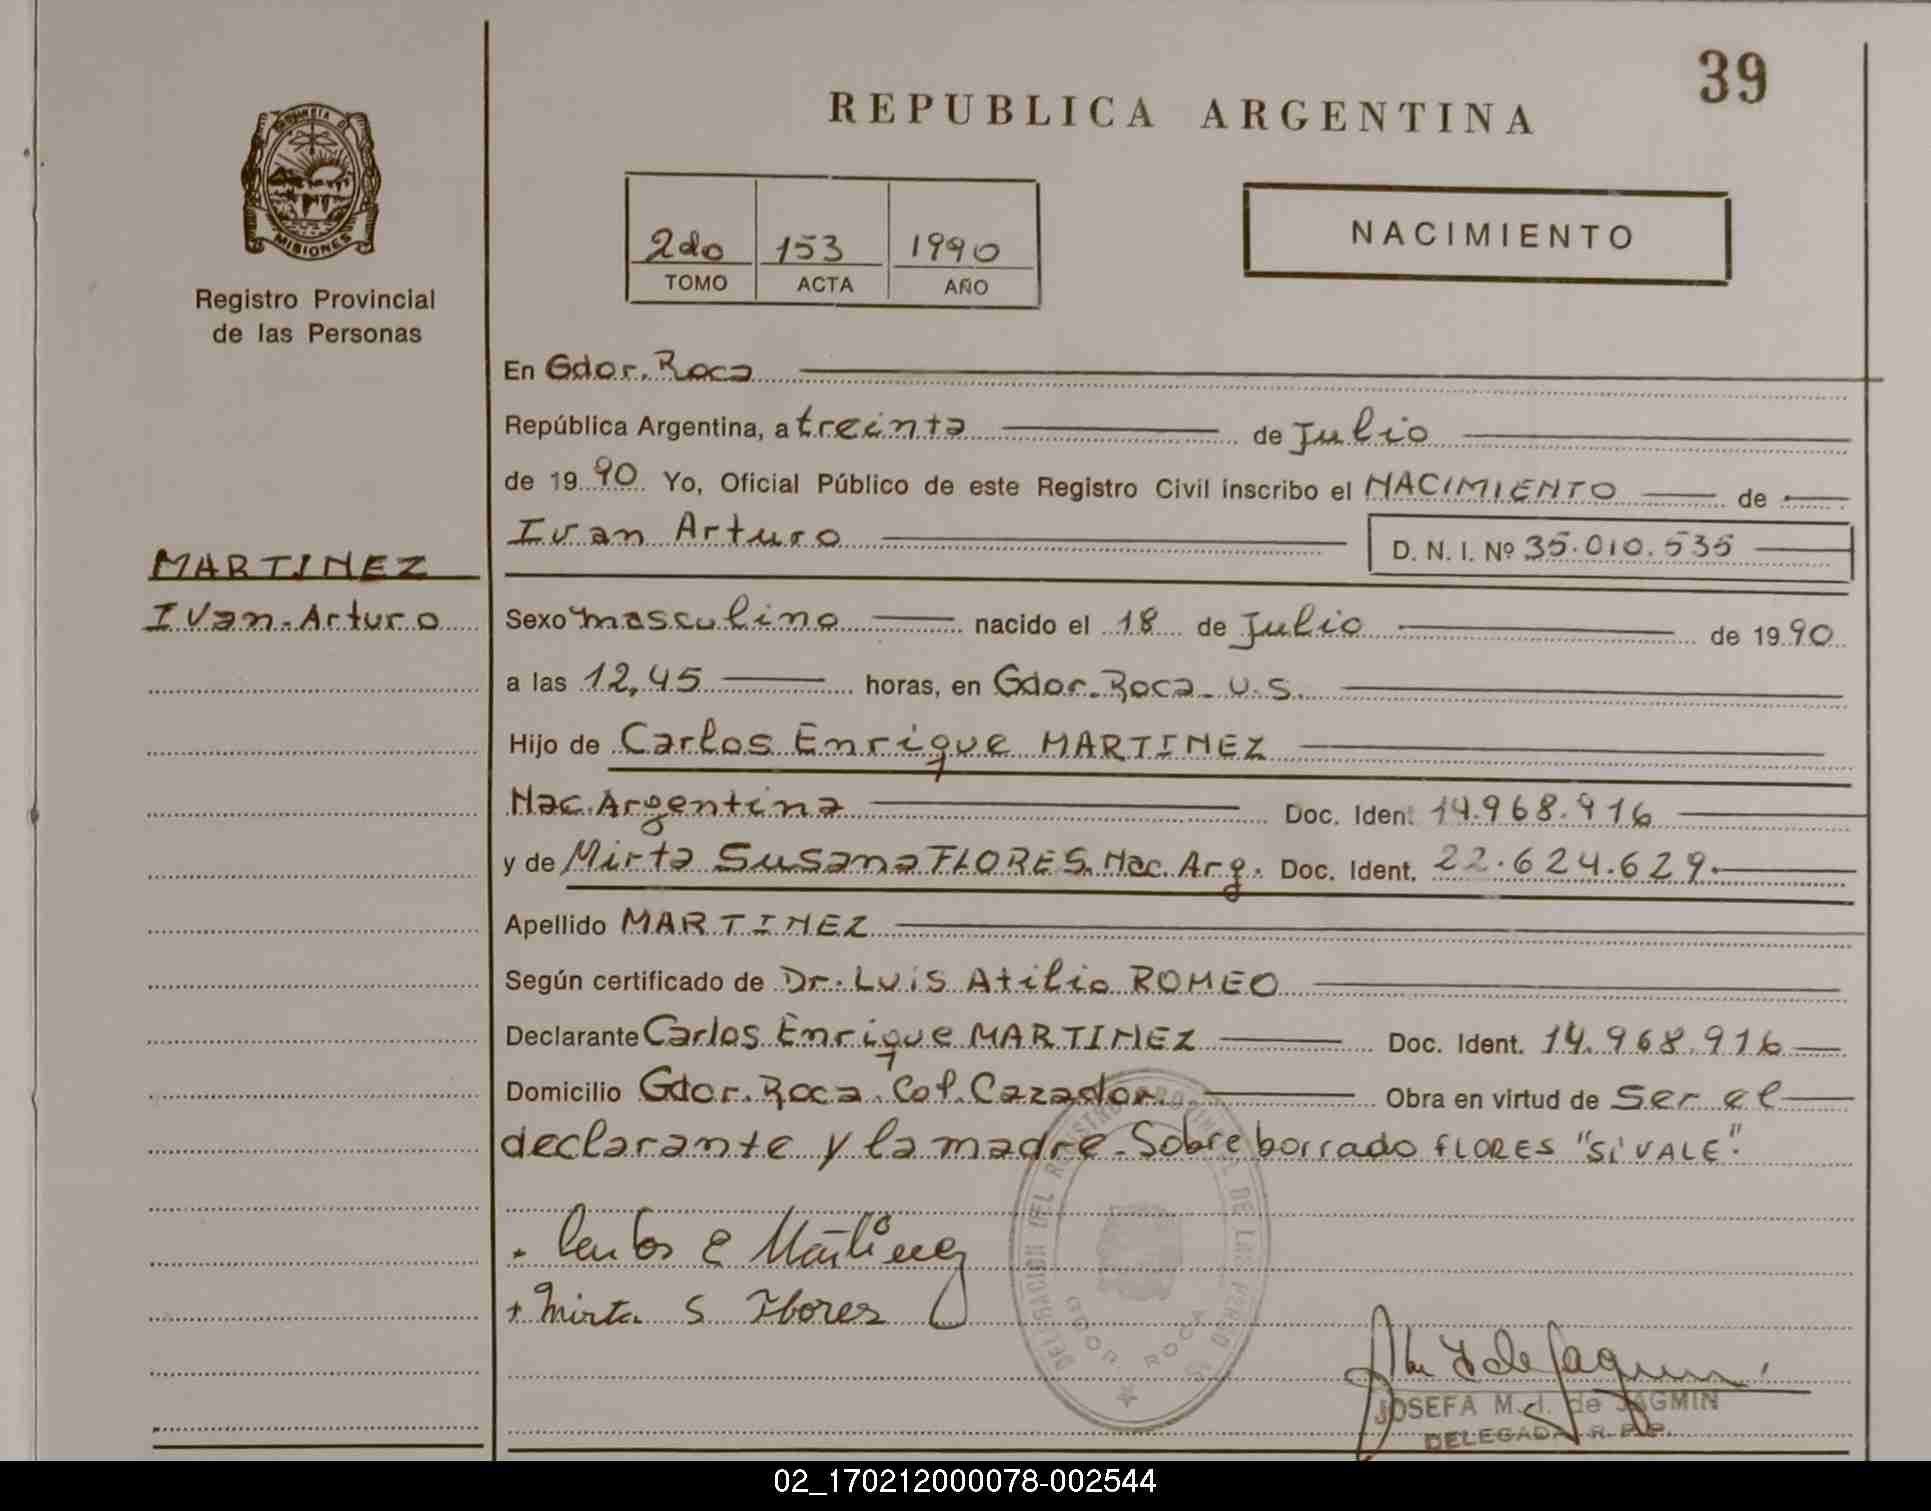 39
REPUBLICA ARGENTINA
PROVINCIA DE
MISIONES
Registro Provincial
de las Personas
2do 153 1990
TOMO ACTA AÑO
NACIMIENTO
En Gdor. Roca
República Argentina, a treinta de Julio
de 1990 Yo, Oficial Público de este Registro Civil inscribo el NACIMIENTO de
Ivan Arturo D. N. I. Nº 35.010.535
MARTINEZ
Ivan Arturo
Sexo masculino nacido el 18 de Julio de 1990
a las 12,45 horas, en Gdor. Roca - U.S.
Hijo de Carlos Enrique MARTINEZ
Nac. Argentina Doc. Ident 14.968.916
y de Mirta Susana FLORES. Nac. Arg. Doc. Ident. 22.624.629.
Apellido MARTINEZ
Según certificado de Dr. Luis Atilio ROMEO
Declarante Carlos Enrique MARTINEZ Doc. Ident. 14.968.916
Domicilio Gdor. Roca. Col. Cazador Obra en virtud de Ser el
declarante y la madre. Sobreborrado FLORES "Sí VALE".
Carlos E Martinez
Mirta S Flores
DELEGACION DEL REGISTRO PROVINCIAL DE LAS PERSO
GDOR. ROCA
JOSEFA M. I. de JAGMIN
DELEGADA R. P. P.
02_170212000078-002544